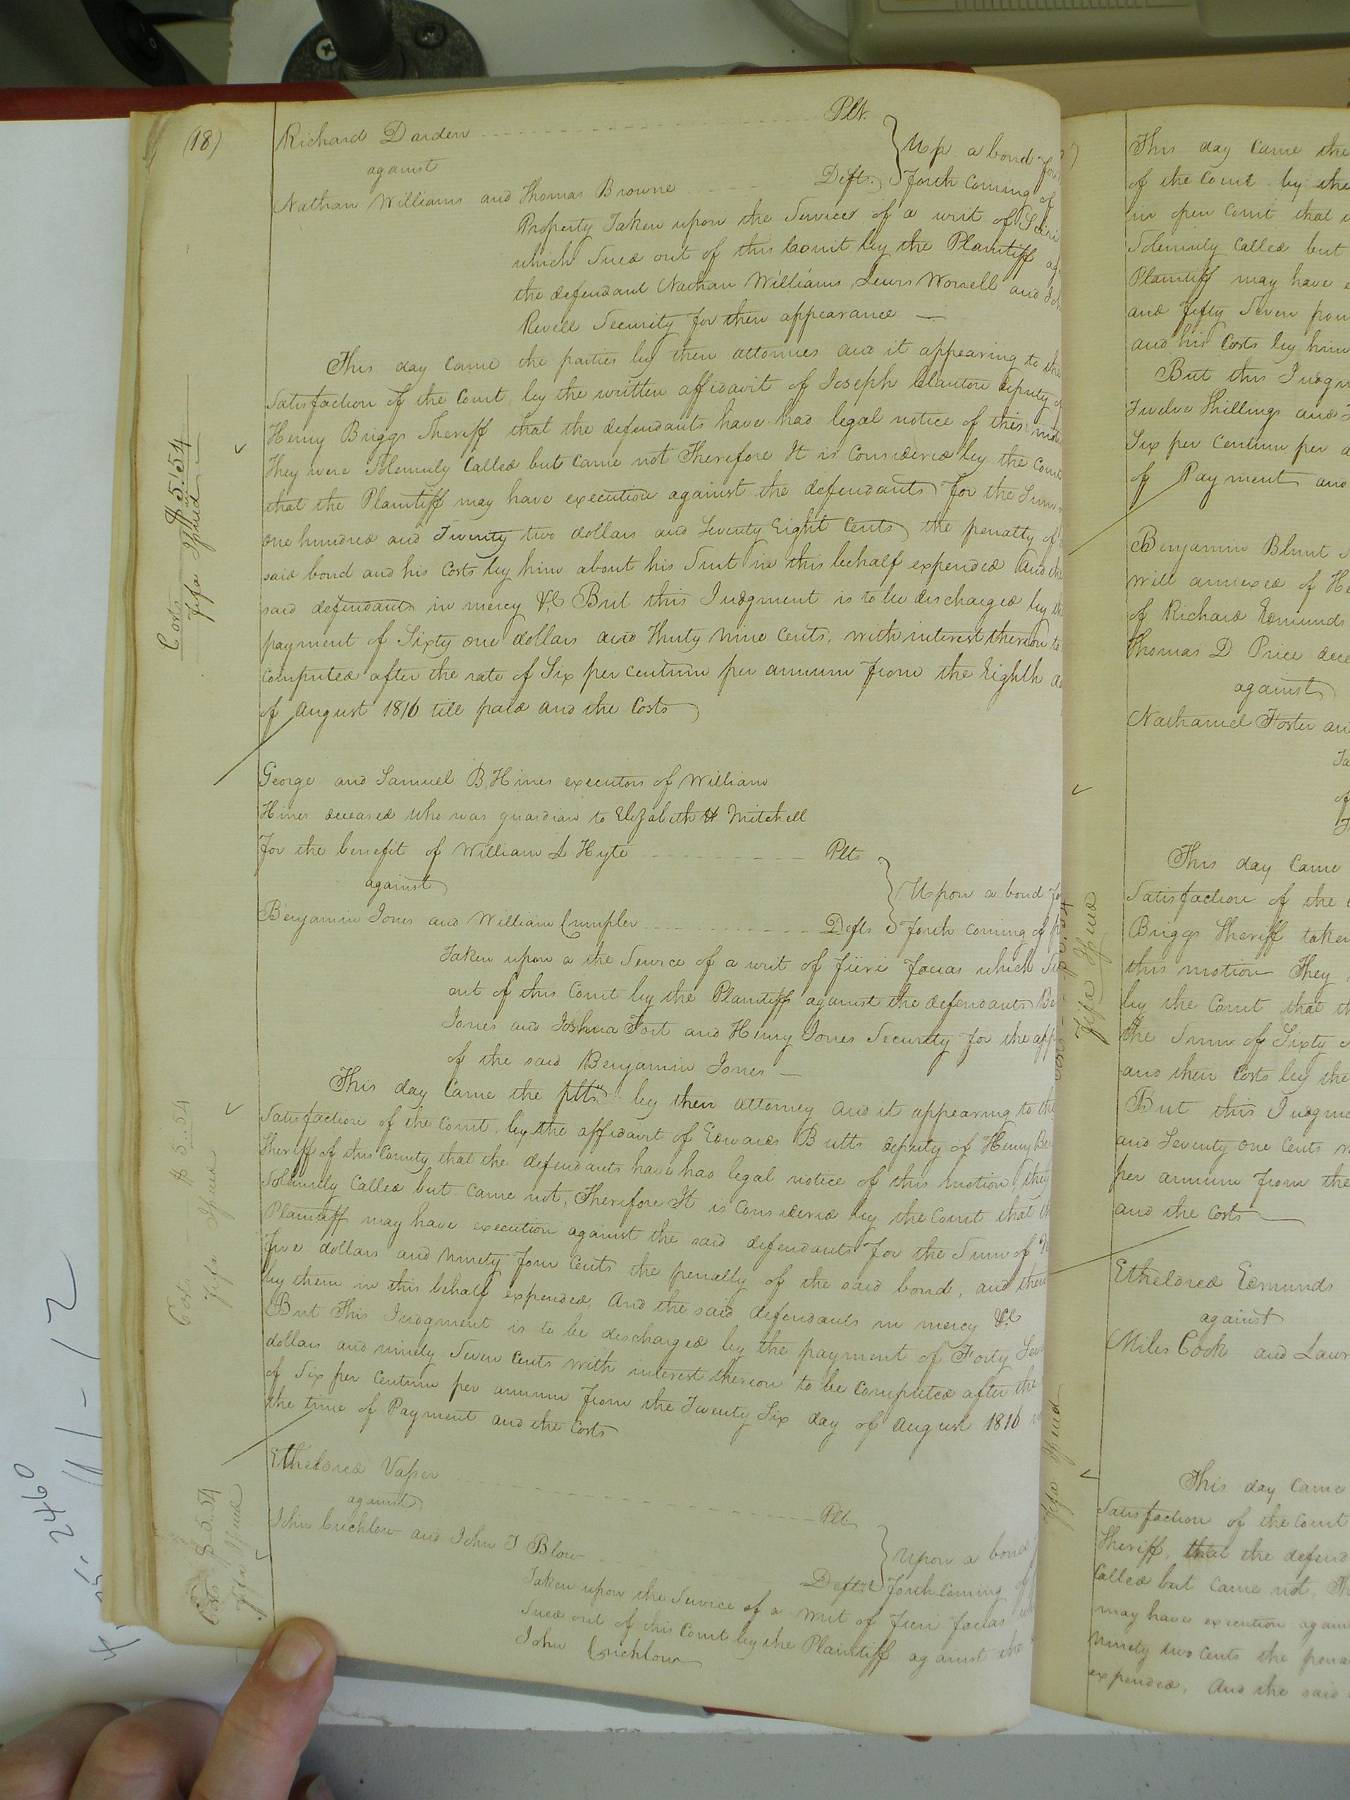 (18)
Richard Darden Plt.
against
Nathan Williams and Thomas Browne Defts.
Upn a bond for
forth coming of
Property Taken upon the Service of a writ of
which Sued out of this Court by the Plaintiff
the defendant Nathan Williams Lewis Worrell and
Revell Security for their appearance
This day came the parties by their attornies and it appearing to the
Satisfaction of the Court, by the written affidavit of Joseph Clanton deputy
Henry Briggs Sheriff that the defendants have had legal notice of this
They were Solemnly Called but came not Therefore It is Considered by the Court
that the Plaintiff may have execution against the defendants for the Sum
one hundred and Twenty two dollars and Seventy Eight Cents the penalty of
said bond and his Costs by him about his Suit in this behalf expended And the
said defendants in mercy &c But this Judgment is to be discharged by the
payment of Sixty one dollars and Thirty Nine Cents, with interest thereon to
Computed after the rate of Six per centum per annum from the Eighth
of August 1816 till paid and the Costs
Costs $5.54
Fifa Issued
George and Samuel B Hines executors of William
Hines deceased who was guardian to Elizabeth H Mitchell
for the benefit of William L Hyte Plts
against
Benjamin Jones and William Crumpler Defts
Upon a bond for
forth coming of
Taken upon a the Service of a writ of fieri facias which
out of this Court by the Plaintiff against the defendants
Jones and Joshua Fort and Henry Jones Security for the
of the said Benjamin Jones
This day came the plts by their attorney and it appearing to the
Satisfaction of the Court, by the affidavit of Edwards Butts deputy of Henry
Sheriff of this County that the defendants have had legal notice of this motion they
Solemnly Called but came not, Therefore It is Considered by the Court that
Plaintiff may have execution against the said defendants for the Sum of
five dollars and Ninety four Cents the penalty of the said bond, and their
by them in this behalf expended, And the said defendants in mercy &c
But This Judgment is to be discharged by the payment of Forty
dollars and ninety Seven Cents with interest thereon to be Computed after the
of Six per Centum per annum from the Twenty Six day of August 1816
the time of Payment and the Costs
Costs $5.54
Fifa Issued
Etheldred Vaser Plt
against
John Crichlow and John T Blow Defts
Upon a bond
forthcoming of
Taken upon the Service of a writ of fieri facias
Sued out of this Court by the Plaintiff against the
John Crichlow
Costs $5.54
Fifa Issued
This day came the
of the Court by the
in open Court that
Solemnly Called but
Plaintiff may have
and fifty Seven
and his Costs by him
But this
Twelve Shillings and
Six per Centum per
of Payment and
Benjamin Blunt
will annexed of
of Richard Edmunds
Thomas D Price
against
Nathaniel Foster
This day came
Satisfaction of the
Briggs Sheriff taken
this motion They
by the Court that
the Sum of Sixty
and their Costs by the
But this
and Seventy one Cents
per annum from the
and the Costs
Fifa Issued
Etheldred Edmunds
against
Miles Cook and
This day came
Satisfaction of the Court
Sheriff, that the
Called but came not.
may have execution
Ninety two Cents the
expended, And the said
Fifa Issued
2460